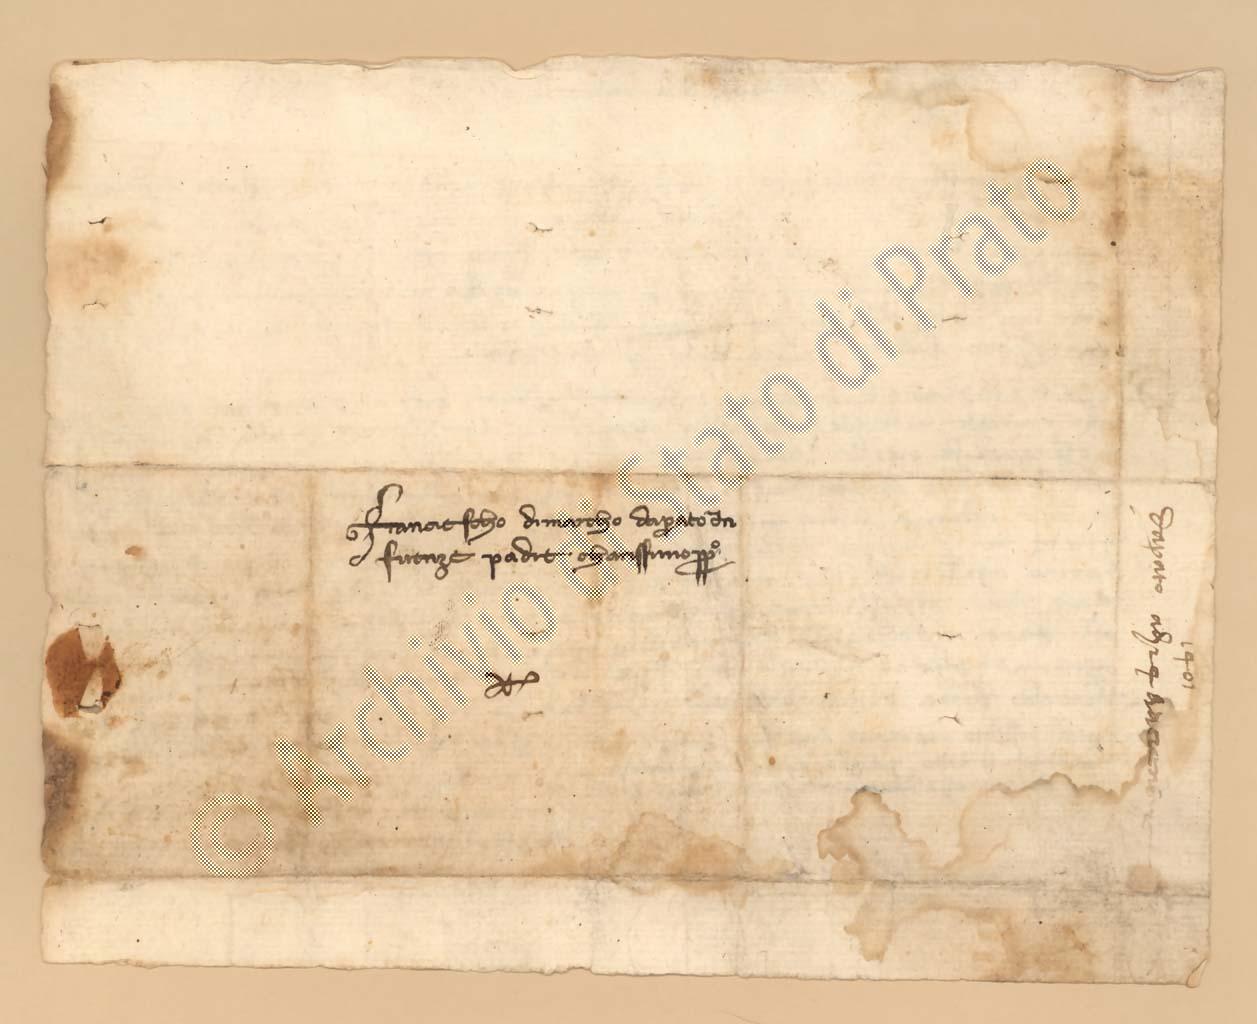 Franciescho di marcho da prato in
firenze padre charissimo pp°
Da prato a dì 29
1401
© Archivio di Stato di Prato